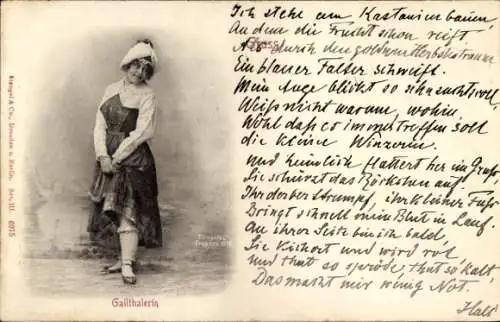 Stengel & Co., Dresden u. Berlin. Ser. III. 6915
Gruss
Gailthalerin
Ich stehe am Kastanienbaum
An dem die Frucht schon reift
durch den goldnen Herbstraum
Ein blauer Falter schweift.
Mein Auge blickt so sehnsuchtsvoll
Weiß nicht warum, wohin,
Wohl daß es immer treffen soll
die kleine Winzerin.
Und heimlich flattert her ein Gruß
Sie schürzt das Röckchen auf.
Ihr derber Strumpf, ihr kleiner Fuß
Bringt schnell mein Blut in Lauf.
An ihrer Seite bin ich bald,
Sie kichert und wird rot
und that so spröde, that so kalt
Das macht mir wenig Not.